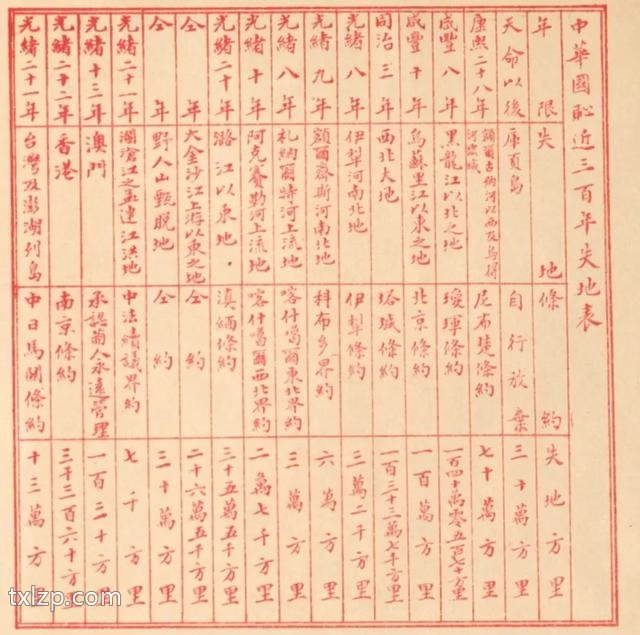 中華國恥近三百年失地表
年限 失地 條約 失地方里
天命以後 庫頁島 自行放棄 三十萬方里
康熙二十八年 額爾古納河以西及烏得河流域 尼布楚條約 七十萬方里
咸豐八年 黑龍江以北之地 璦琿條約 一百四十萬零五百七十方里
咸豐十年 烏蘇里江以東之地 北京條約 一百萬方里
同治三年 西北大地 塔城條約 一百三十三萬七千方里
光緒八年 伊犁河南北地 伊犁條約 三萬二千方里
光緒九年 額爾齊斯河南北地 科布多界約 六萬方里
光緒八年 札納爾特河上流地 喀什噶爾東北界約 三萬方里
光緒十年 阿克賽勒河上流地 喀什噶爾西北界約 二萬七千方里
光緒二十年 潞江以東地 滇緬條約 三十五萬五千方里
仝年 大金沙江上游以東之地 仝約 二十六萬五千方里
仝年 野人山甄脱地 仝約 三十萬方里
光緒二十一年 瀾滄江之孟連江洪地 中法續議界約 七千方里
光緒十三年 澳門 承認葡人永遠管理 一百三十方里
光緒二十二年 香港 南京條約 三千三百六十方里
光緒二十一年 台灣及澎湖列島 中日馬關條約 十三萬方里
txlzp.com